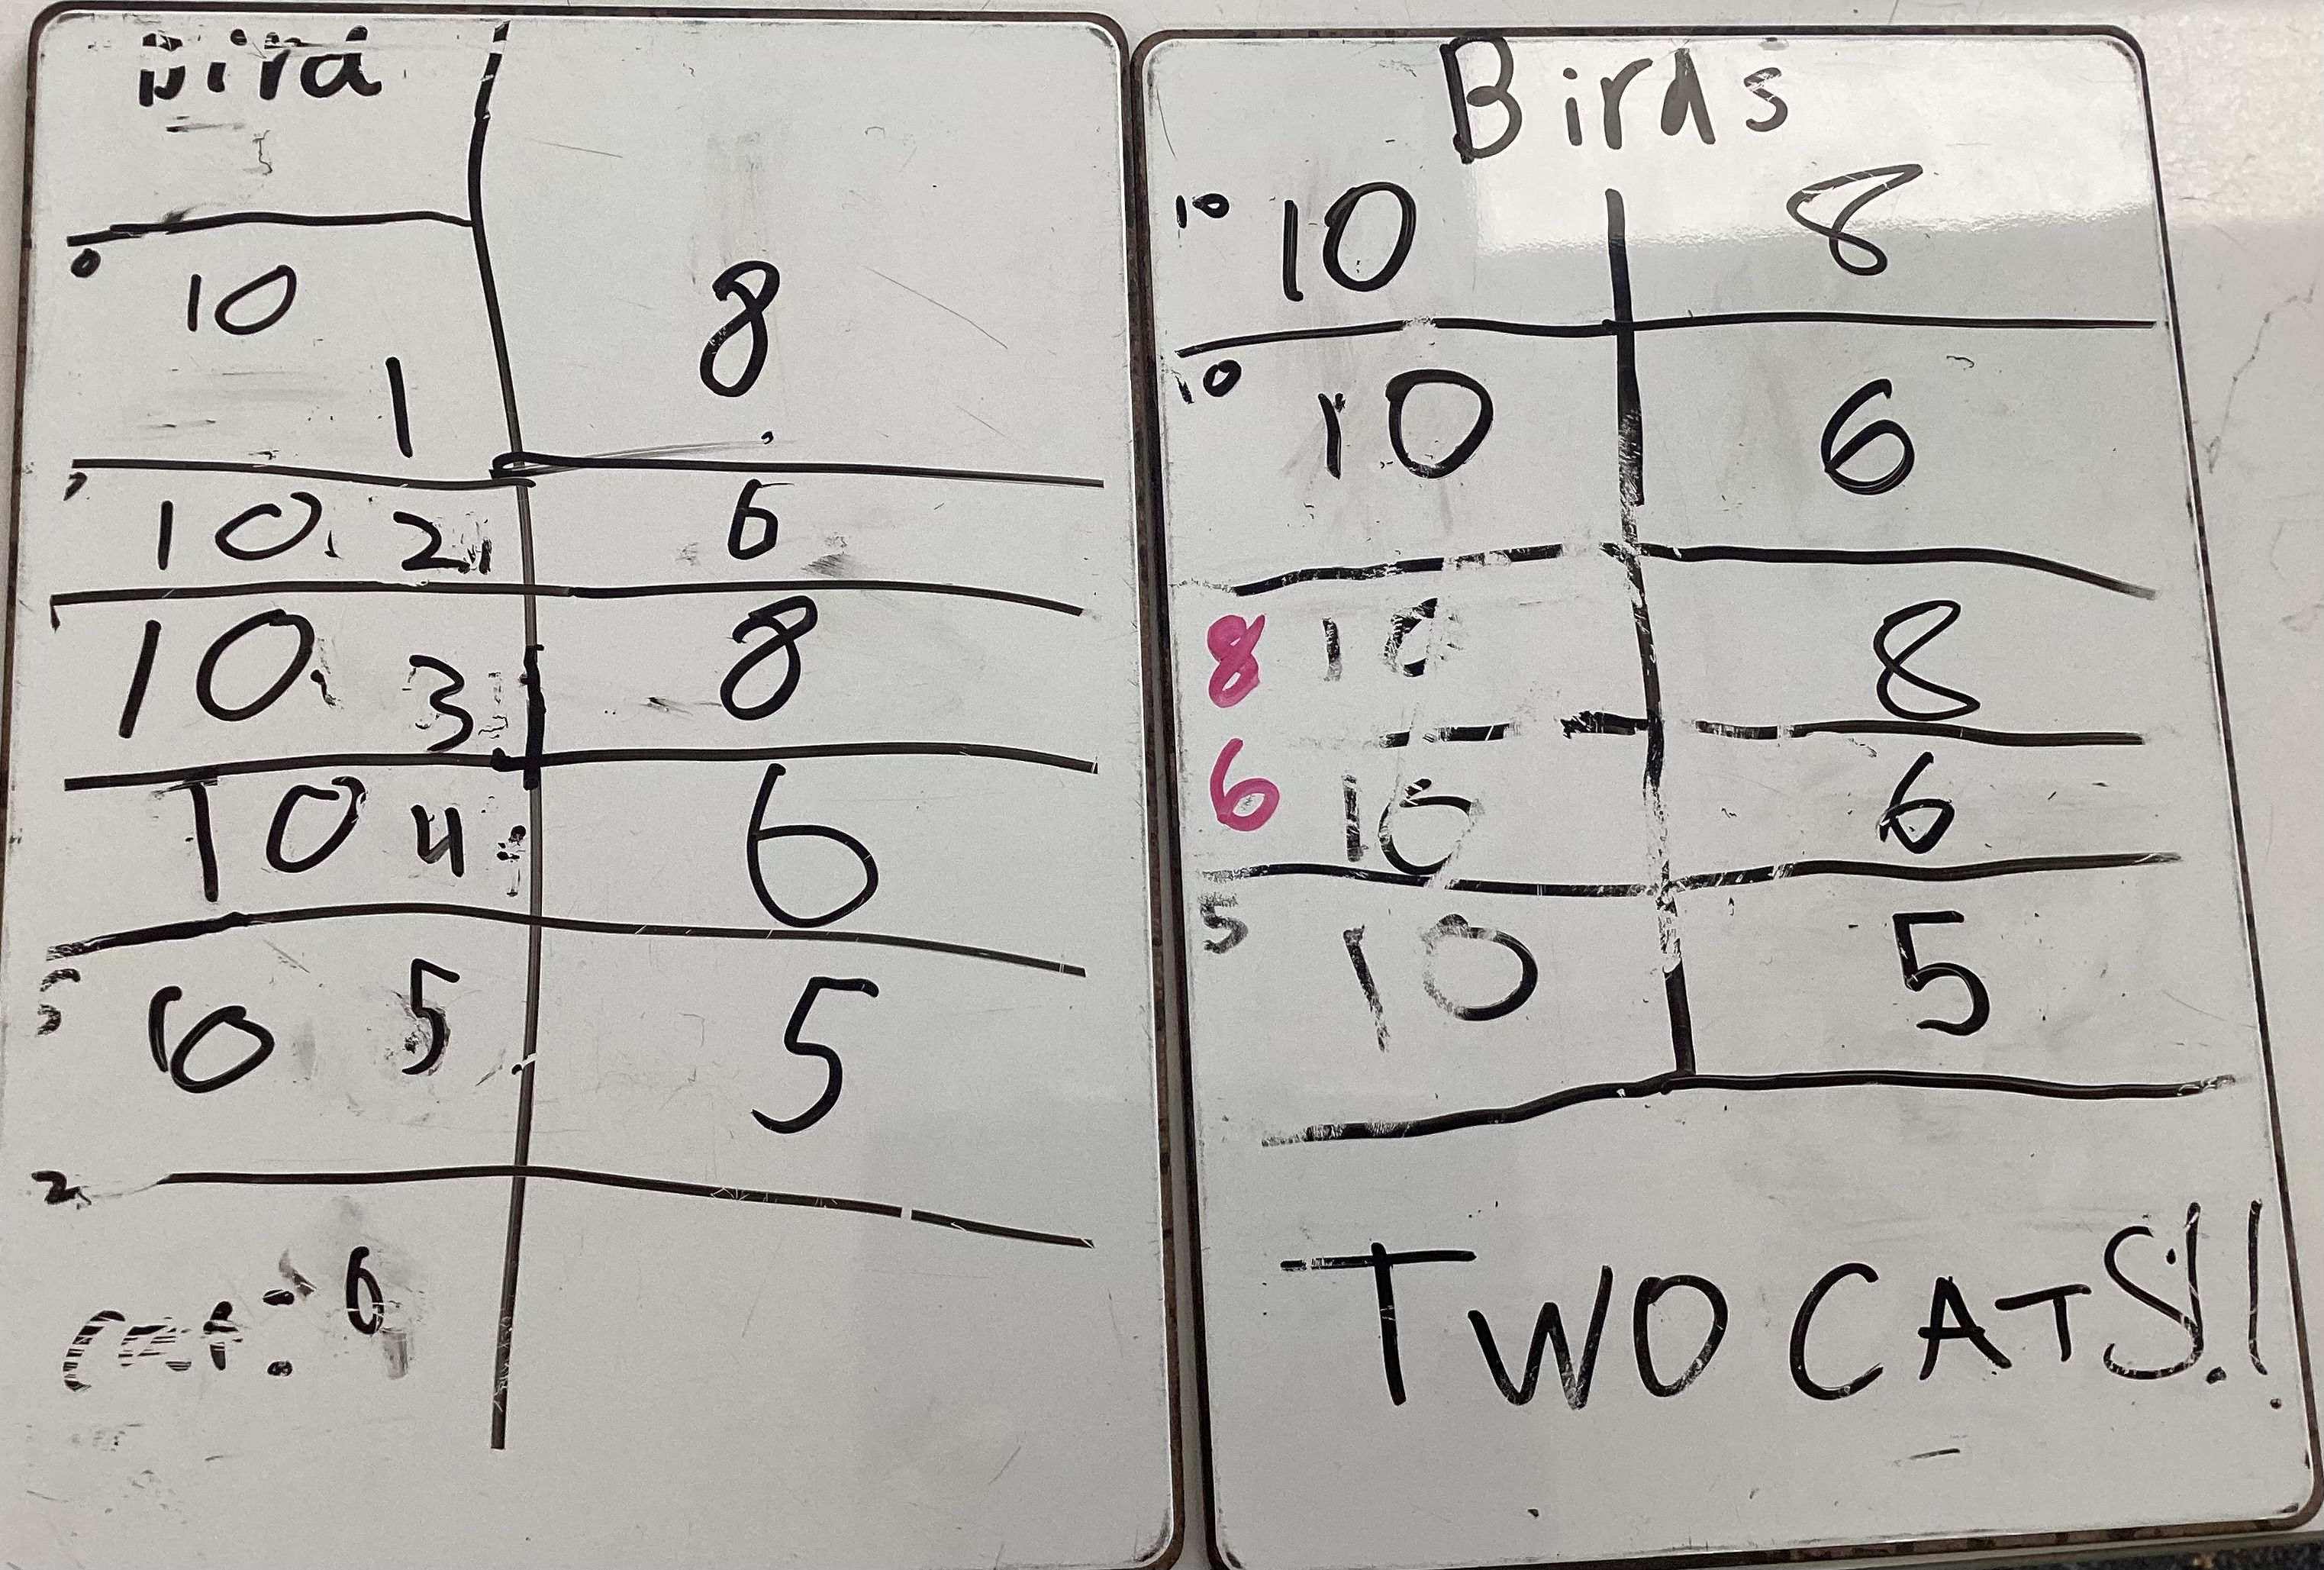 Bird
0
10
8
1
10 2 6
10 3 8
10 4 6
5
10 5 5
2
cat: 6
Birds
10 10 8
10 10 6
8 10 8
6 10 6
5 10 5
TWO CATS!!